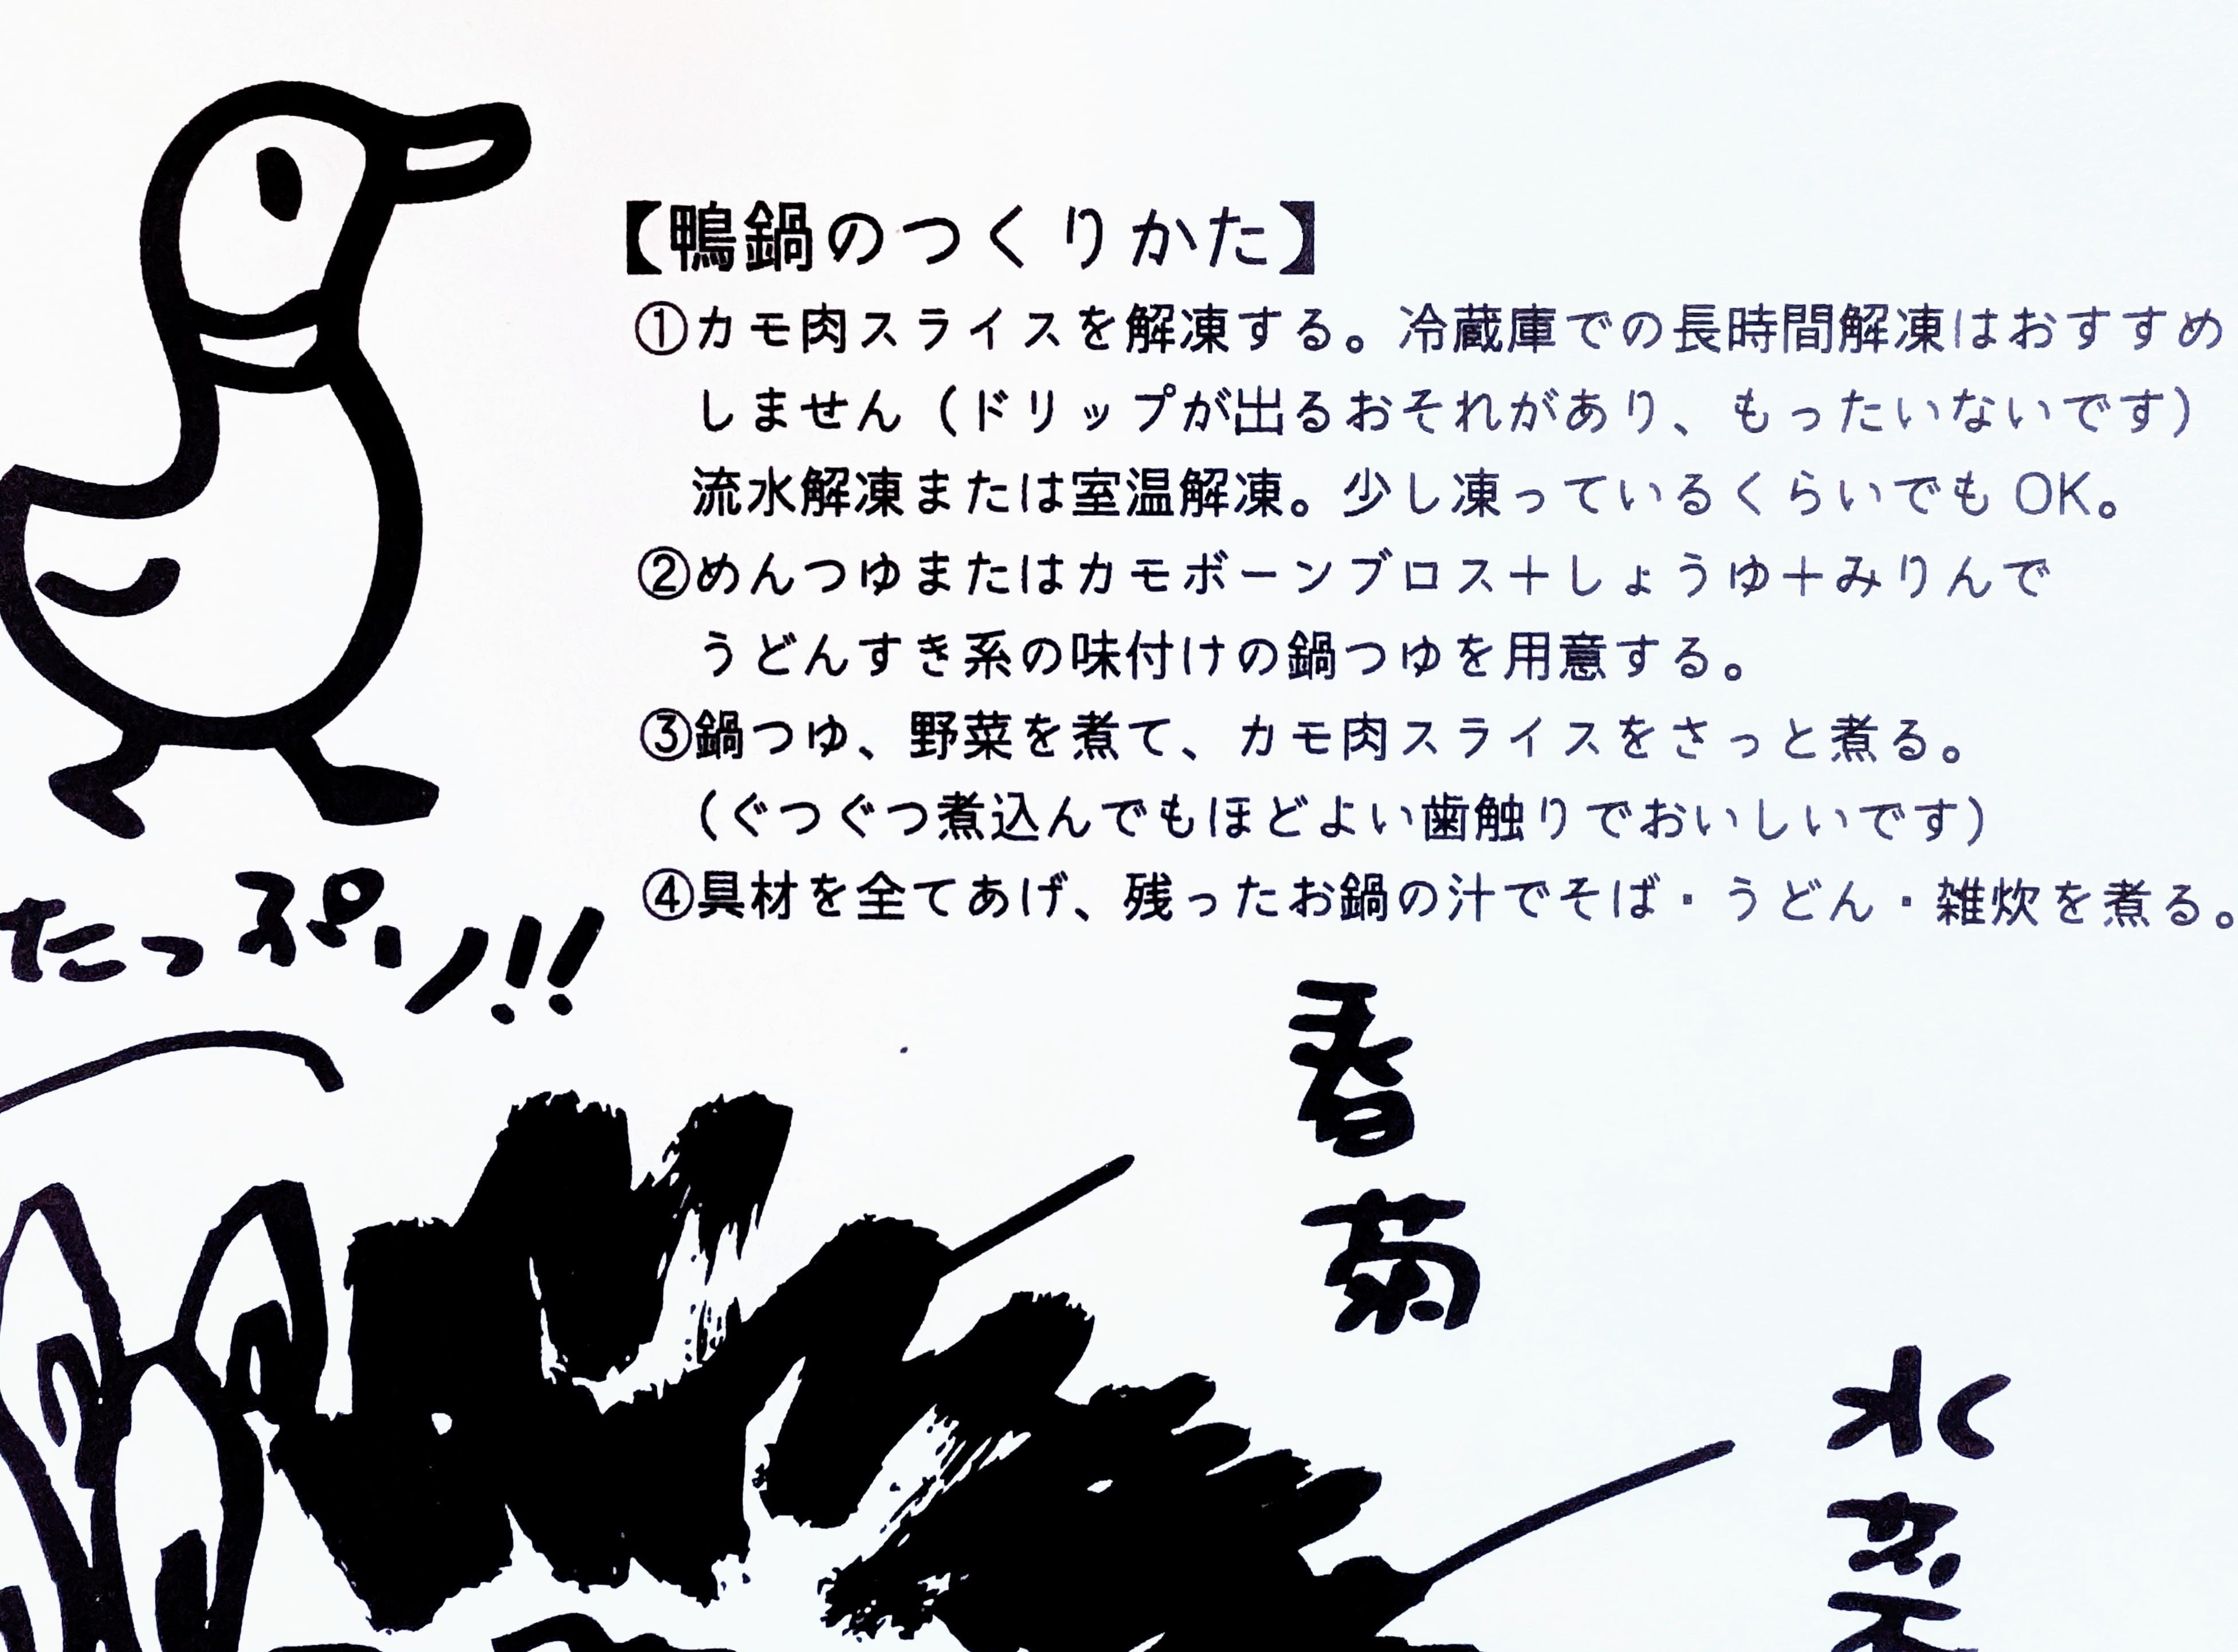 【鴨鍋のつくりかた】
①カモ肉スライスを解凍する。冷蔵庫での長時間解凍はおすすめ
しません（ドリップが出るおそれがあり、もったいないです）
流水解凍または室温解凍。少し凍っているくらいでも OK。
②めんつゆまたはカモボーンブロス＋しょうゆ＋みりんで
うどんすき系の味付けの鍋つゆを用意する。
③鍋つゆ、野菜を煮て、カモ肉スライスをさっと煮る。
（ぐつぐつ煮込んでもほどよい歯触りでおいしいです）
④具材を全てあげ、残ったお鍋の汁でそば・うどん・雑炊を煮る。
たっぷり!!
春菊
水菜